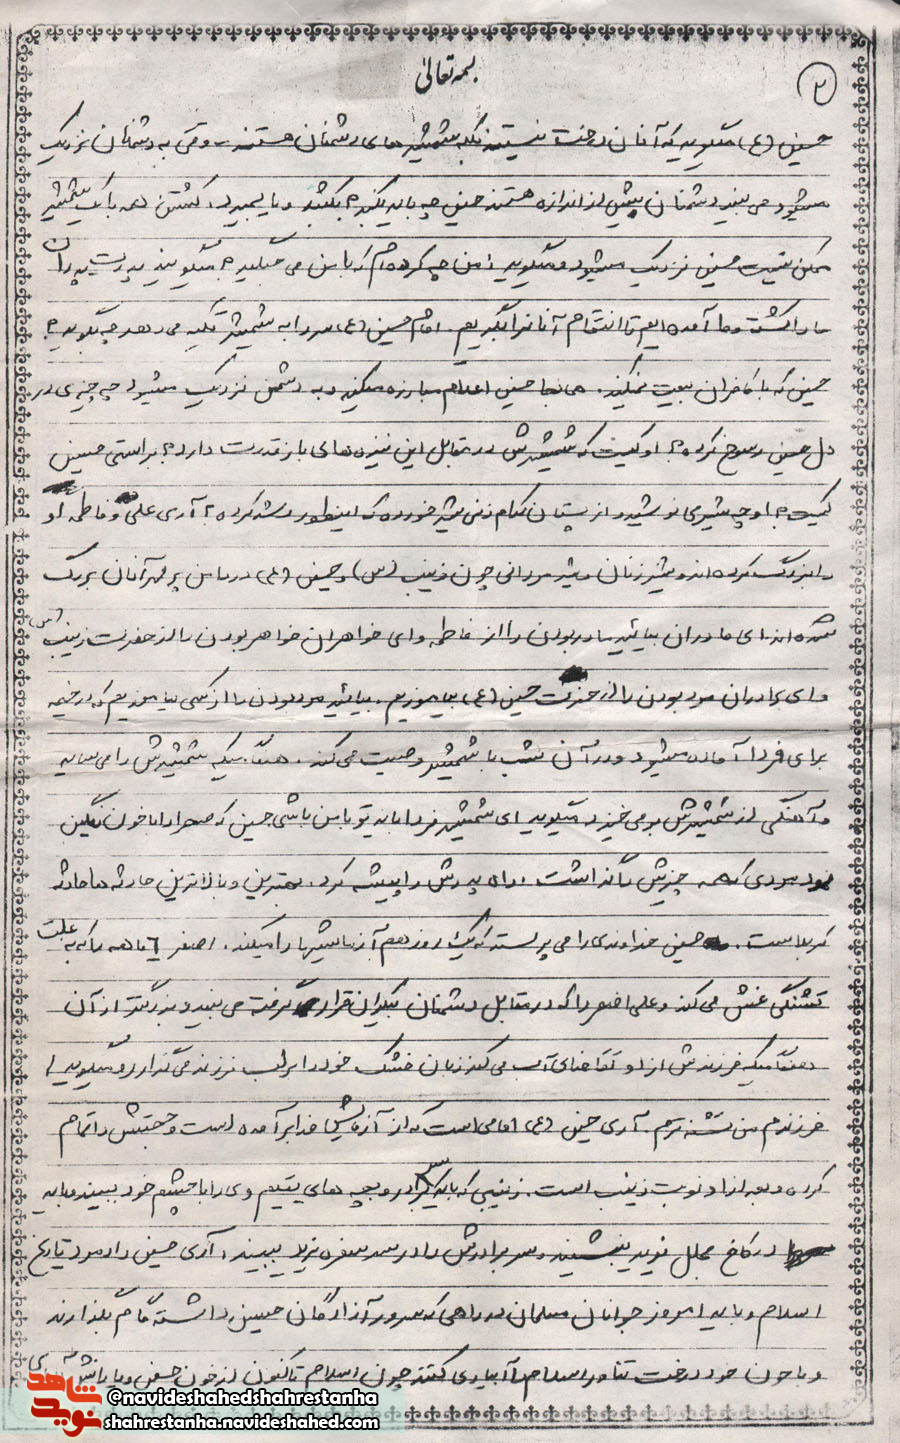 بسمه تعالی
۲
حسین (ع) میگوید که آنان درخت نیستند بلکه شمشیرهای دشمنان هستند وقتی به دشمنان نزدیک
میشود می بیند دشمنان بیش از اندازه هستند حسین چه باید بکند؟ بکشد و یا بمیرد. کشتن همه با یک شمشیر
ممکن نیست حسین نزدیک میشود و میگوید: من چه کرده ام که با من می جنگید؟ میگویند پدرت پدران
ما را کشت و ما آمده ایم تا انتقام آنانرا بگیریم. امام حسین (ع) سر را به شمشیر تکیه می دهد چه بگوید؟
حسین که با کافران بیعت نمیکند. همانجا حسین اعلام مبارزه میکند و به دشمن نزدیک میشود چه چیزی در
دل حسین رسوخ کرده؟ او کیست که شمشیرش در مقابل این نیزه های باز قدرت دارد؟ براستی حسین
کیست؟ او چه شیری نوشیده و از پستان کدام زنی شیر خورده که اینطور رشد کرده؟ آری علی و فاطمه او
را بزرگ کرده اند و شیرزنان و شیرمردانی چون زینب (س) و حسین (ع) در دامن پر مهر آنان بزرگ
شده اند. ای مادران بیائید مادر بودن را از فاطمه و ای خواهران خواهر بودن را از حضرت زینب (س)
و ای برادران مرد بودن را از حضرت حسین (ع) بیاموزیم. بیائید مرد بودن را از کسی بیاموزیم که در خیمه
برای فردا آماده میشود و در آن شب با شمشیر وصیت می کند. هنگامیکه شمشیرش را می ساید
و آهنگی از شمشیرش برمی خیزد میگوید ای شمشیر فردا باید تو با من باشی حسین که صحرا را با خون رنگین
نمود مردی که همه چیزش را گذاشت. راه پدرش را پیشه کرد. بهترین و بالاترین حادثه ها حادثه
کربلاست. حسین خداوندی را می پرستد که یک روز هم آزمایشها را میکند. اصغر ۶ ماهه را که به علت
تشنگی غش می کند و علی اکبر را که در مقابل دشمنان بیکران قرار گرفته می بیند و بدتر از آن
هنگامیکه فرزندش از او تقاضای آب می کند زبان خشک خود را بر لب فرزند می گذارد و میگوید:
فرزندم من تشنه ترم. آری حسین (ع) امامی است که از آزمایش خدا برآمده است و حجتش را تمام
کرده و بعد از او نوبت زینب است. زینبی که باید بچه های یتیم وی را با چشم خود ببیند و باید
در کاخ مجلل یزید بنشیند و سر برادرش را در سر سفره یزید ببیند. آری حسین رادمرد تاریخ
اسلام و باید امروز جوانان مسلمان در راهی که سرور آزادگان حسین داشته گام بگذارند
و با خون خود درخت تناور اسلام را آبیاری کنند چون اسلام تاکنون از خون حسین و یارانش
شاهد
نوید
@navideshahedshahrestanha
shahrestanha.navideshahed.com